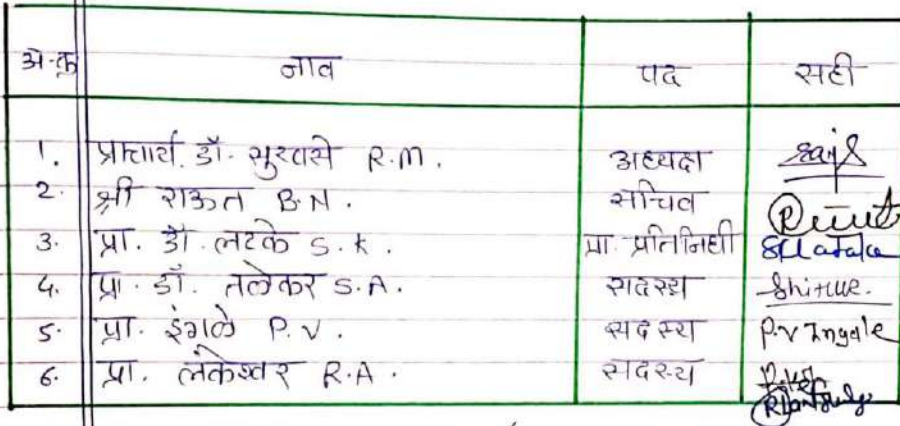 अ.क्र नाव पद सही
1. प्राचार्य. डॉ. सुरवसे R.M. अध्यक्ष
2. श्री राऊत B.N. सचिव
3. प्रा. डॉ. लटके S.K. प्रा. प्रतिनिधी
4. प्रा. डॉ. तळेकर S.A. सदस्य
5. प्रा. इंगळे P.V. सदस्य P.V Ingale
6. प्रा. लंकेश्वर R.A. सदस्य